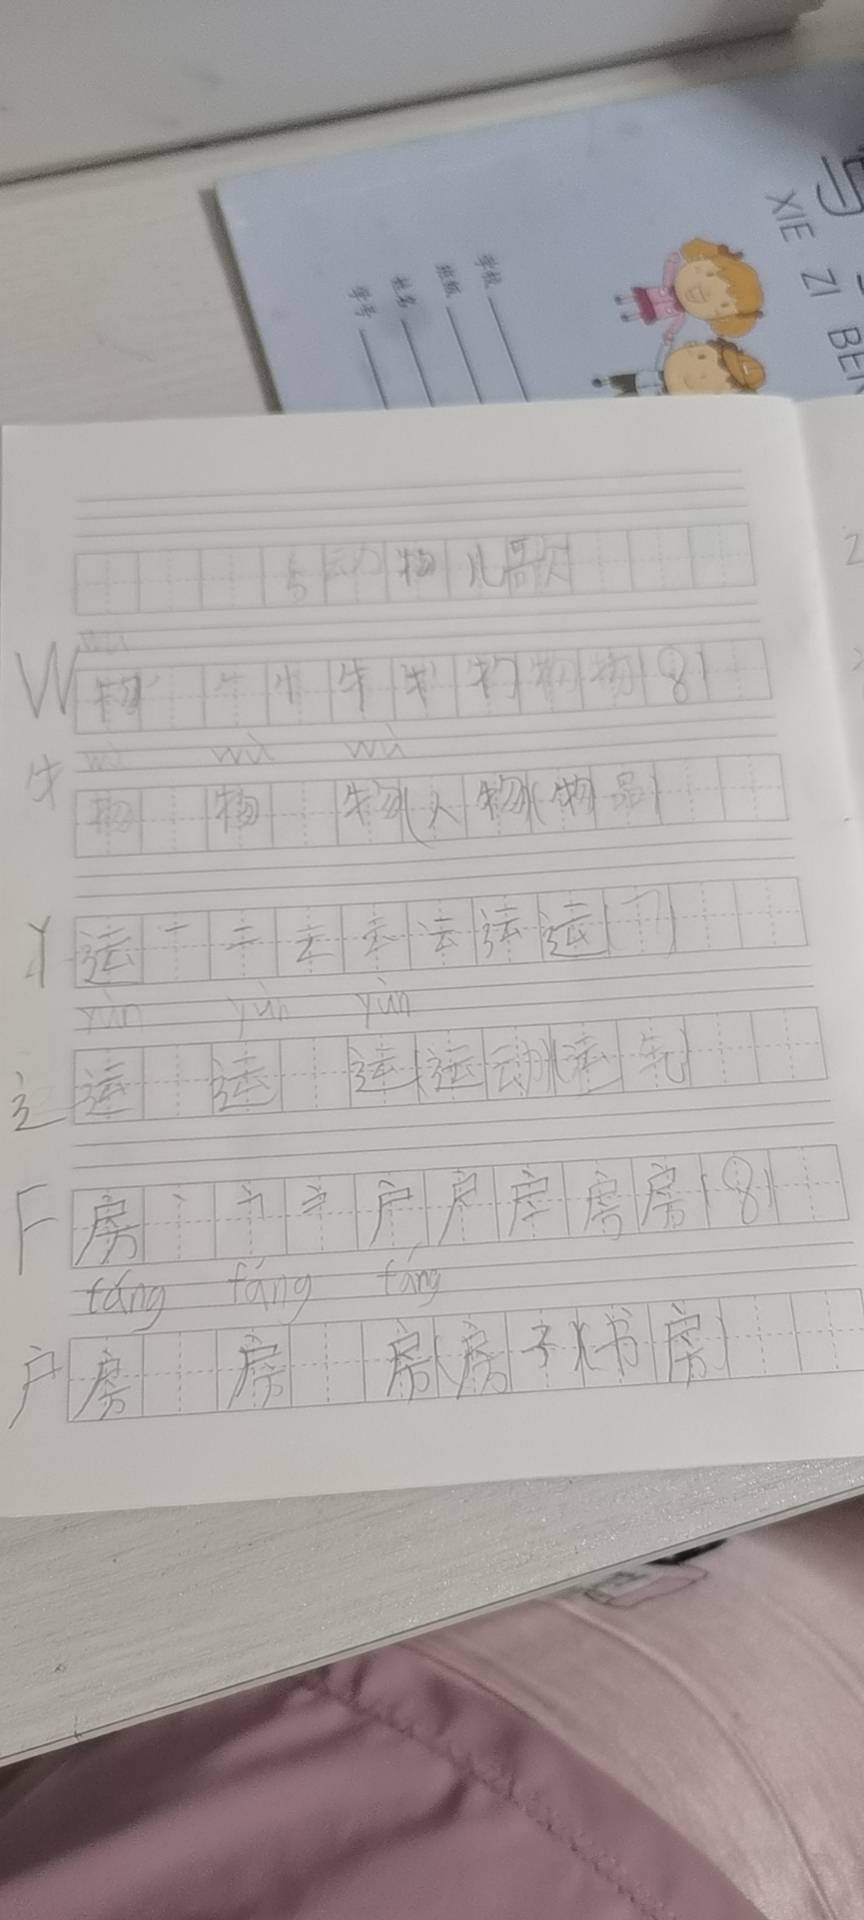 写
XIE ZI BEN
学校
班级
姓名
学号
5动物儿歌
wù
W 物 牛 物 物 物 物(8)
wù wù wù
牛 物 物 物(人物)(物品)
Y 运 一 二 云 云 云 运 运(7)
yùn yùn yùn
辶 运 运 运(运动)(运气)
F 房 丶 户 户 房 房(8)
fáng fáng fáng
户 房 房 房(房子)(书房)